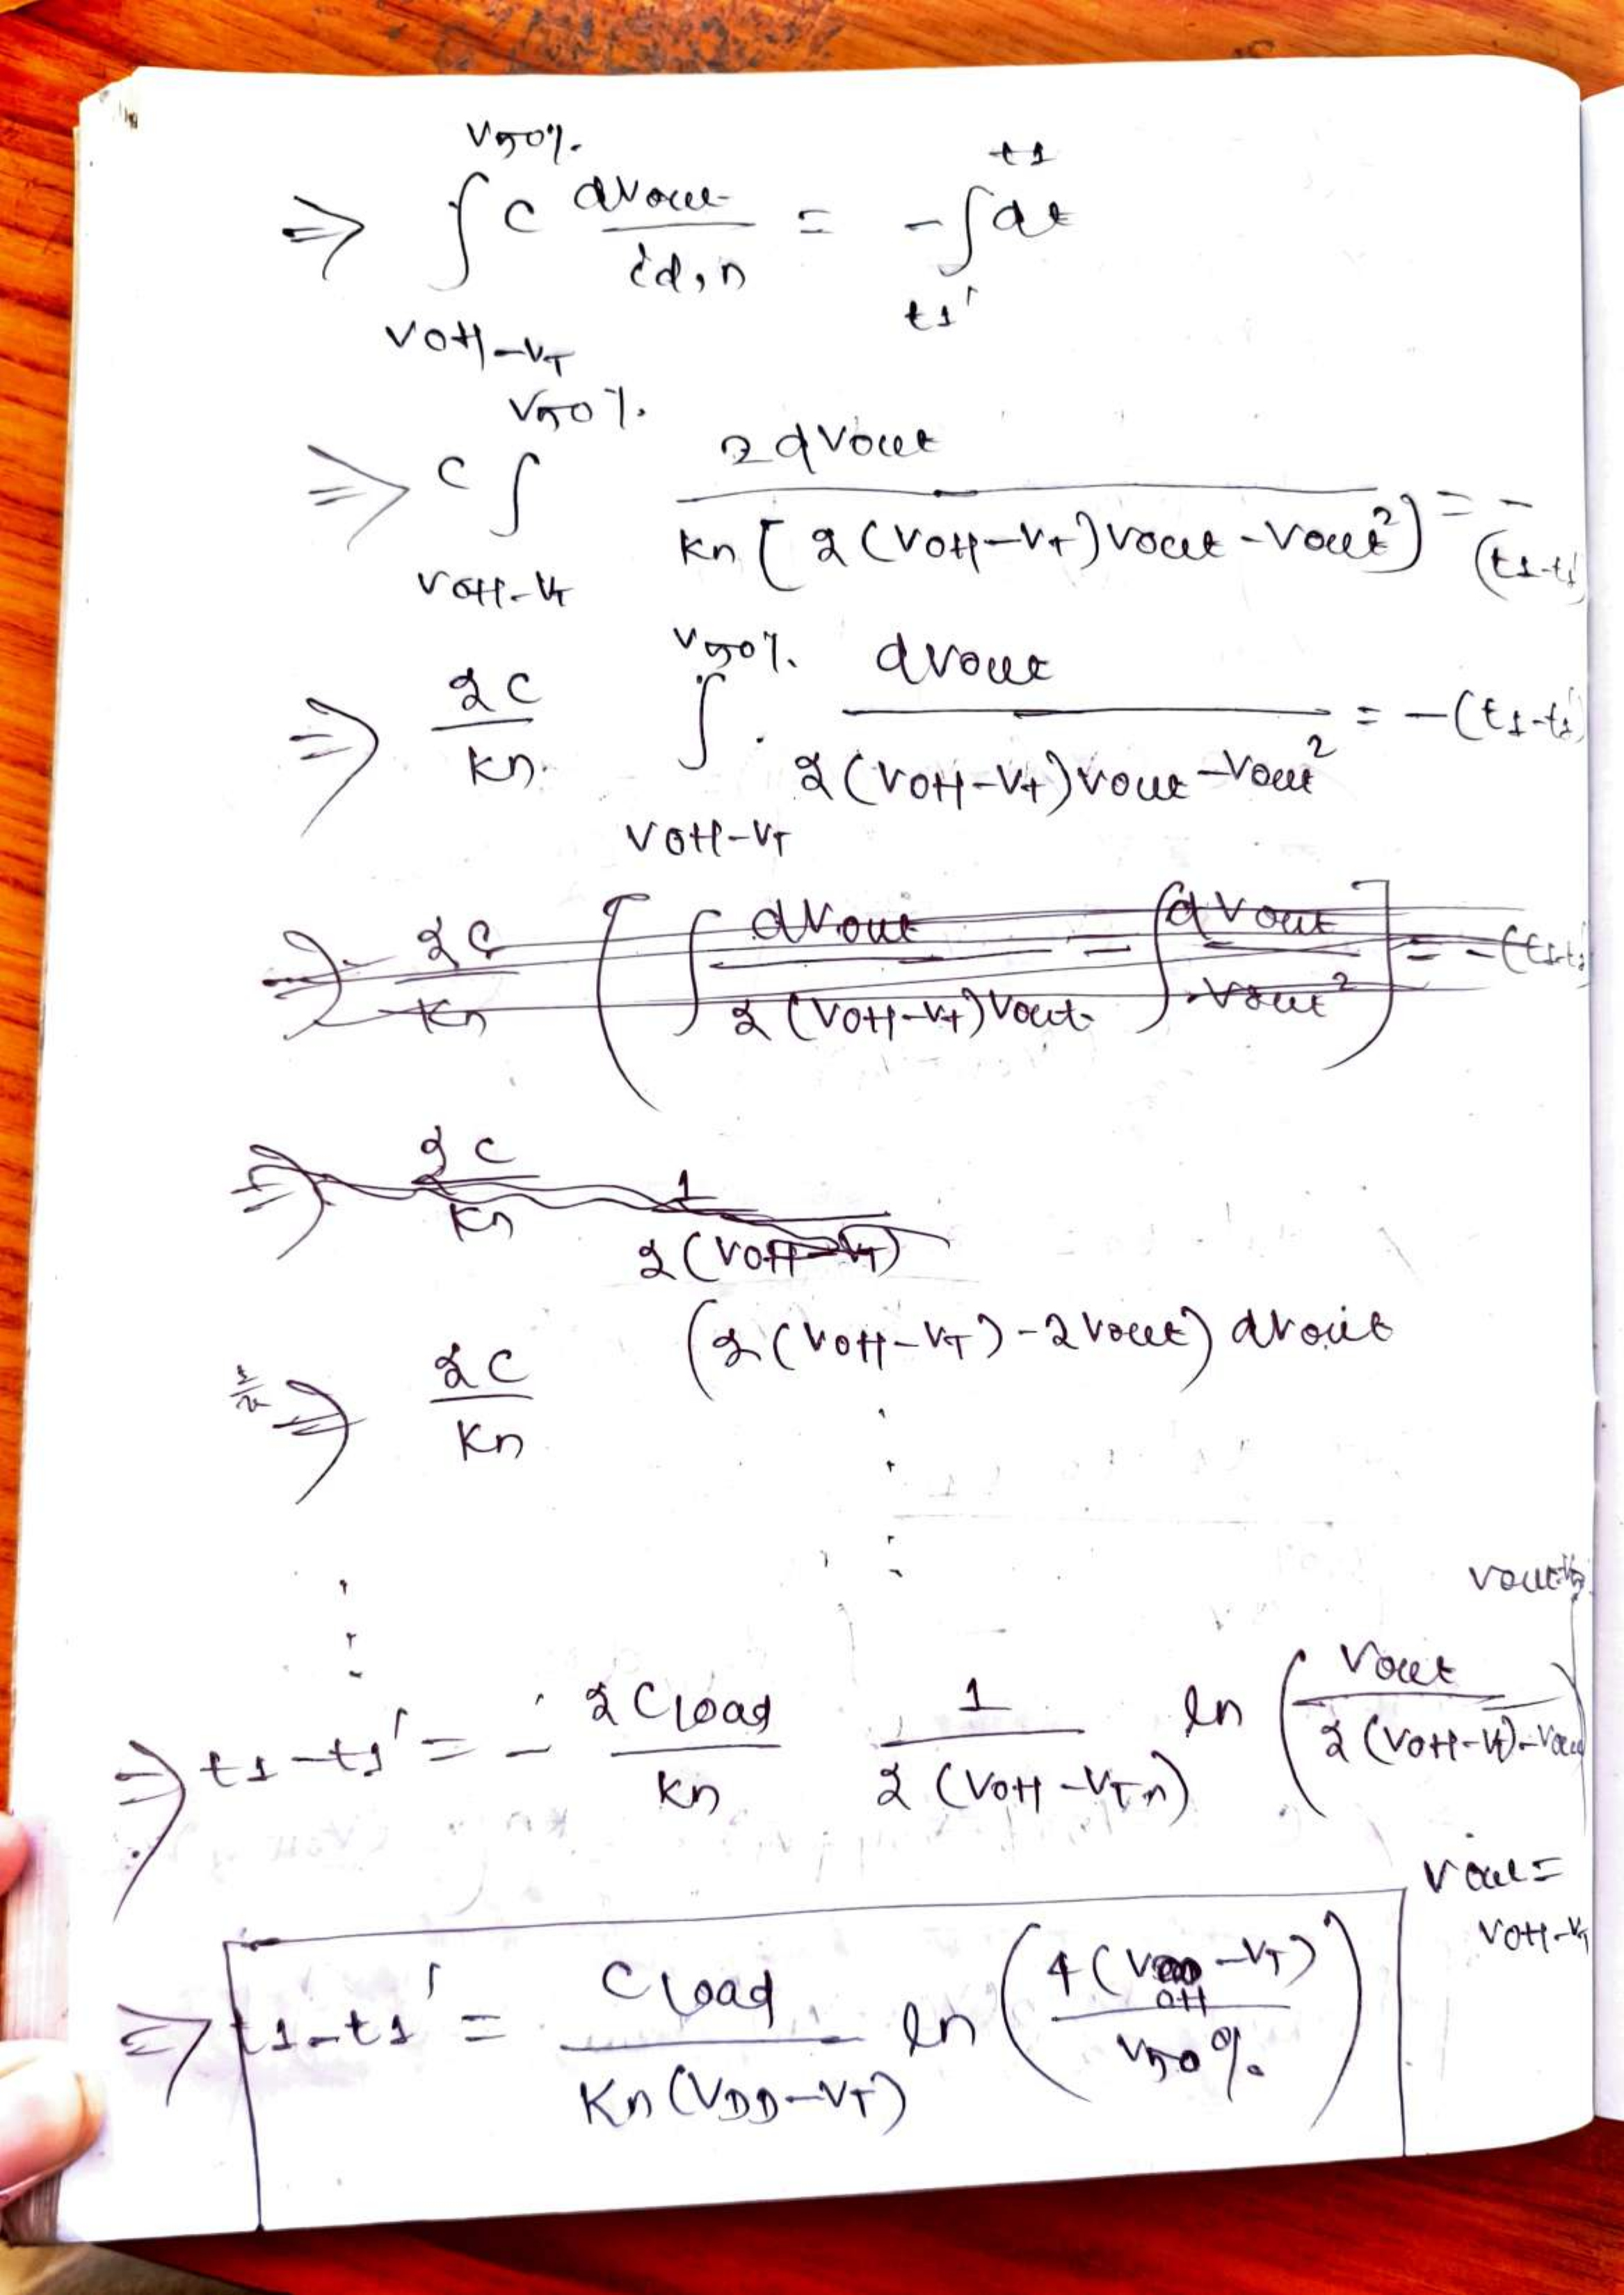 V50%. t1
⇒ ∫ C dVout / id,n = - ∫ dt
VOH-VT t1'
V50%.
⇒ C ∫ 2dVout / Kn [2(VOH-VT)Vout-Vout²] = - (t1-t1'
VOH-VT
V50%. dVout
⇒ 2C / Kn ∫ dVout / 2(VOH-VT)Vout-Vout² = -(t1-t1'
VOH-VT
⇒ 2C / Kn [ ∫ dVout / 2(VOH-VT)Vout = ∫ dVout / Vout² ] = -(t1-t1
⇒ 2C / Kn 1 / 2(VOH-VT)
⇒ 2C / Kn (2(VOH-VT)-2Vout) dVout
⇒ t1-t1' = - 2Cload / Kn 1 / 2(VOH-VTn) ln (Vout / 2(VOH-VT)-Vout
Vout=
VOH-VT
⇒ t1-t1' = Cload / Kn(VDD-VT) ln (4(VOH-VT) / V50%.)